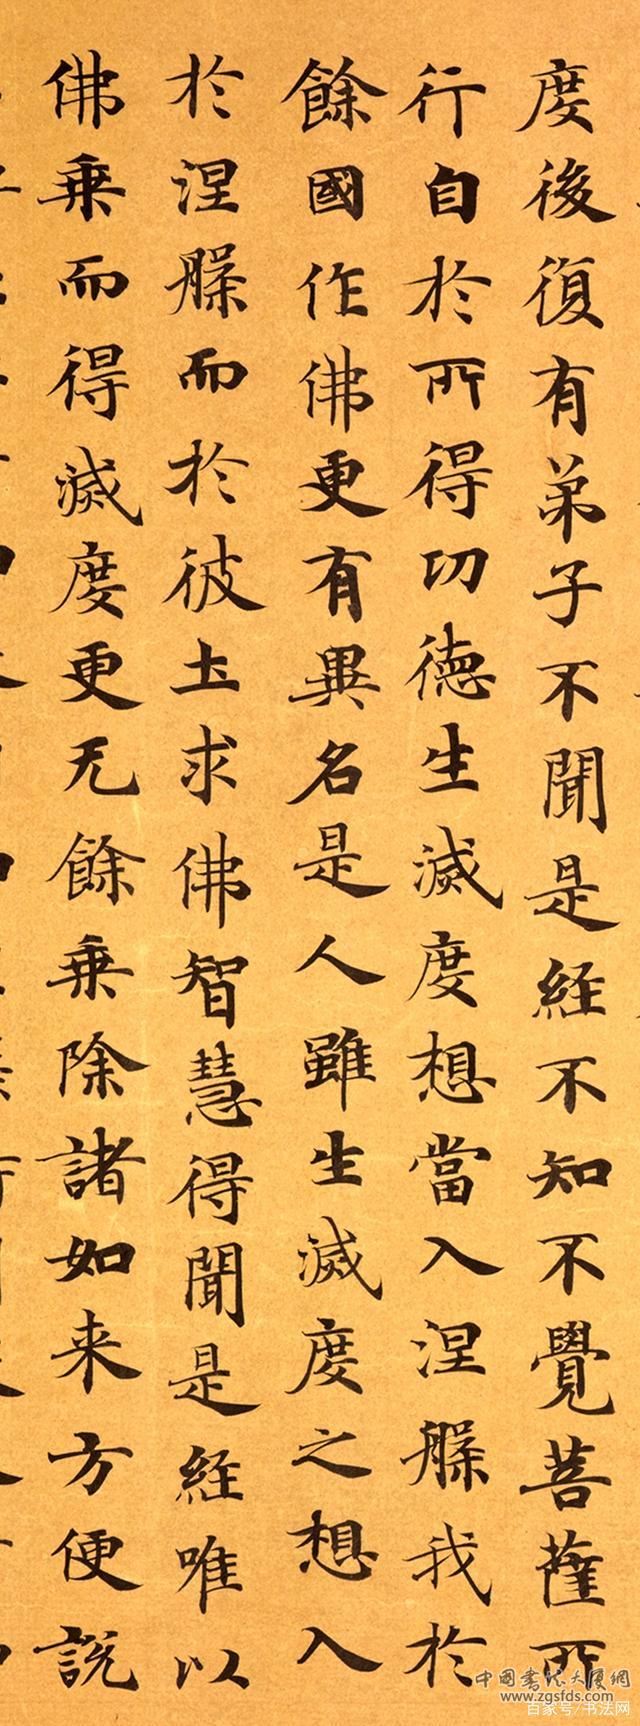 度後復有弟子不聞是経不知不覺菩薩所
行自於所得功徳生滅度想當入涅槃我於
餘國作佛更有異名是人雖生滅度之想入
於涅槃而於彼土求佛智慧得聞是経唯以
佛乗而得滅度更无餘乗除諸如来方便說
中國書法大厦網
www.zgsfds.com
百家号/书法网